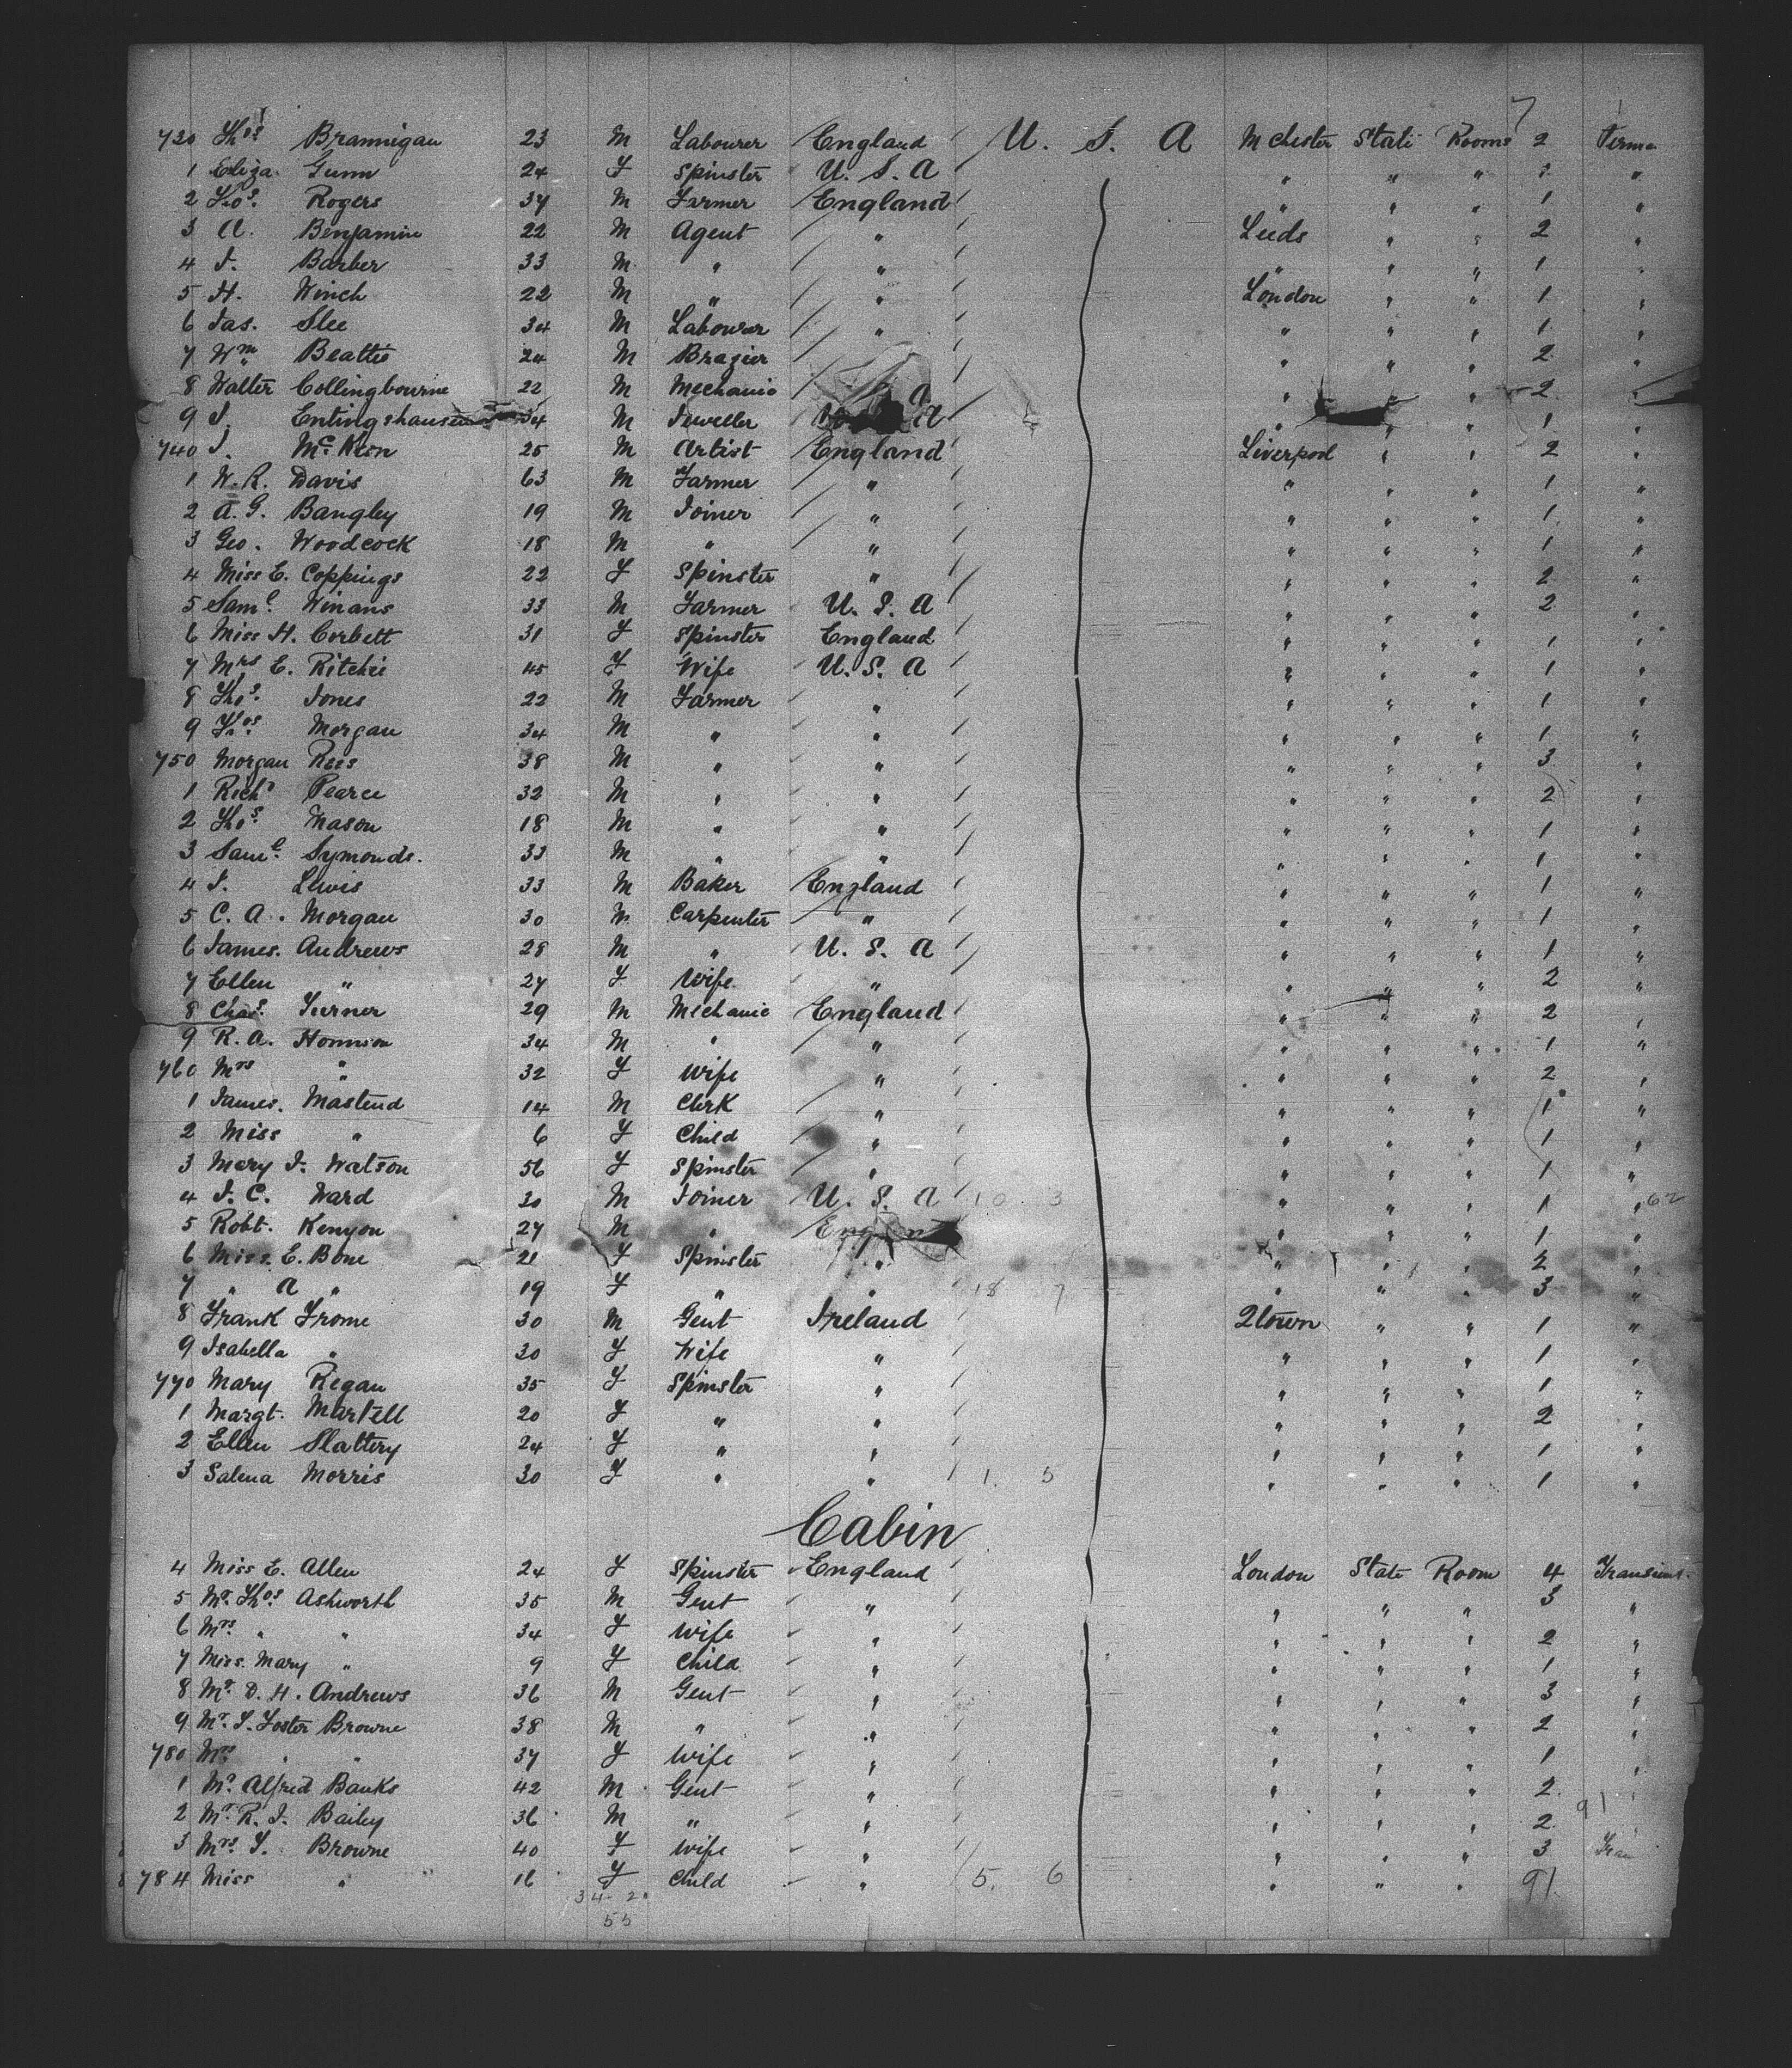 7
730 Thos Brannigan 23 M Labourer England U. S. A Mchester State Rooms 2 Perma
1 Eliza Gunn 24 F Spinster U. S. A " " " "
2 Thos. Rogers 37 M Farmer England " " " 1 "
3 A. Benjamin 22 M Agent " Leeds " " 2 "
4 J. Barber 33 M " " " " " 1 "
5 H. Winch 22 M " " London " " 1 "
6 Jas. Slee 34 M Labourer " " " " 1 "
7 Wm Beattie 24 M Brazier " " " 2 "
8 Walter Collingbourne 22 M Mechanic " " " 2 "
9 J. Entingshausen 34 M Jeweller A " " " 1 "
740 J. McKeon 25 M Artist England Liverpool " " 2 "
1 W. R. Davis 63 M Farmer " " " " 1 "
2 A. G. Bangley 19 M Joiner " " " " 1 "
3 Geo. Woodcock 18 M " " " " " 1 "
4 Miss E. Coppings 22 F Spinster " " " " 2 "
5 Saml. Winans 33 M Farmer U. S. A " " " 2 "
6 Miss H. Corbett 31 F Spinster England " " " 1 "
7 Mrs E. Ritchie 45 F Wife U. S. A " " " 1 "
8 Thos. Jones 22 M Farmer " " " " 1 "
9 Thos. Morgan 34 M " " " " " 1 "
750 Morgan Rees 38 M " " " " " 3 "
1 Richd Pearce 32 M " " " " " 2 "
2 Thos. Mason 18 M " " " " " 1 "
3 Saml. Symonds. 33 M " " " " " 1 "
4 J. Lewis 33 M Baker England " " " 1 "
5 C. A. Morgan 30 M Carpenter " " " " 1 "
6 James. Andrews 28 M " U. S. A " " " 1 "
7 Ellen " 27 F Wife " " " " 2 "
8 Chas. Turner 29 M Mechanic England " " " 2 "
9 R. A. Honnion 34 M " " " " " 1 "
760 Mrs " 32 F Wife " " " " 2 "
1 James. Mastend 14 M Clerk " " " " 1 "
2 Miss " 6 F Child " " " " 1 "
3 Mary J. Watson 56 F Spinster " " " " 1 "
4 J. C. Ward 30 M Joiner U. S. A 10 3 " " " 1 " 62
5 Robt. Kenyon 27 M " England " " " 1 "
6 Miss. E. Bone 21 F Spinster " " " " 2 "
7 " A " 19 F " " 18 7 " " " 3 "
8 Frank Frome 30 M Gent Ireland Qtown " " 1 "
9 Isabella " 30 F Wife " " " " 1 "
770 Mary Regan 35 F Spinster " " " " 1 "
1 Margt. Martell 20 F " " " " " 2 "
2 Ellen Slattery 24 F " " " " " 1 "
3 Salena Morris 30 F " " 1. 5 " " " 1 "
Cabin
4 Miss E. Allen 24 F Spinster England London State Room 4 Transient
5 Mr. Thos Ashworth 35 M Gent " " " " 3 "
6 Mrs. " " 34 F Wife " " " " 2 "
7 Miss. Mary " 9 F Child " " " " 1 "
8 Mr. D. H. Andrews 36 M Gent " " " " 3 "
9 Mr. T. Foster Browne 38 M " " " " " 2 "
780 Mrs " " 37 F Wife " " " " 1 "
1 Mr. Alfred Banks 42 M Gent " " " " 2 "
2 Mr. R. J. Bailey 36 M " " " " " 2 91 "
3 Mrs. T. Browne 40 F Wife " " " " 3 Tran
784 Miss " 16 F Child " 5. 6 " " " 91
34- 2
55